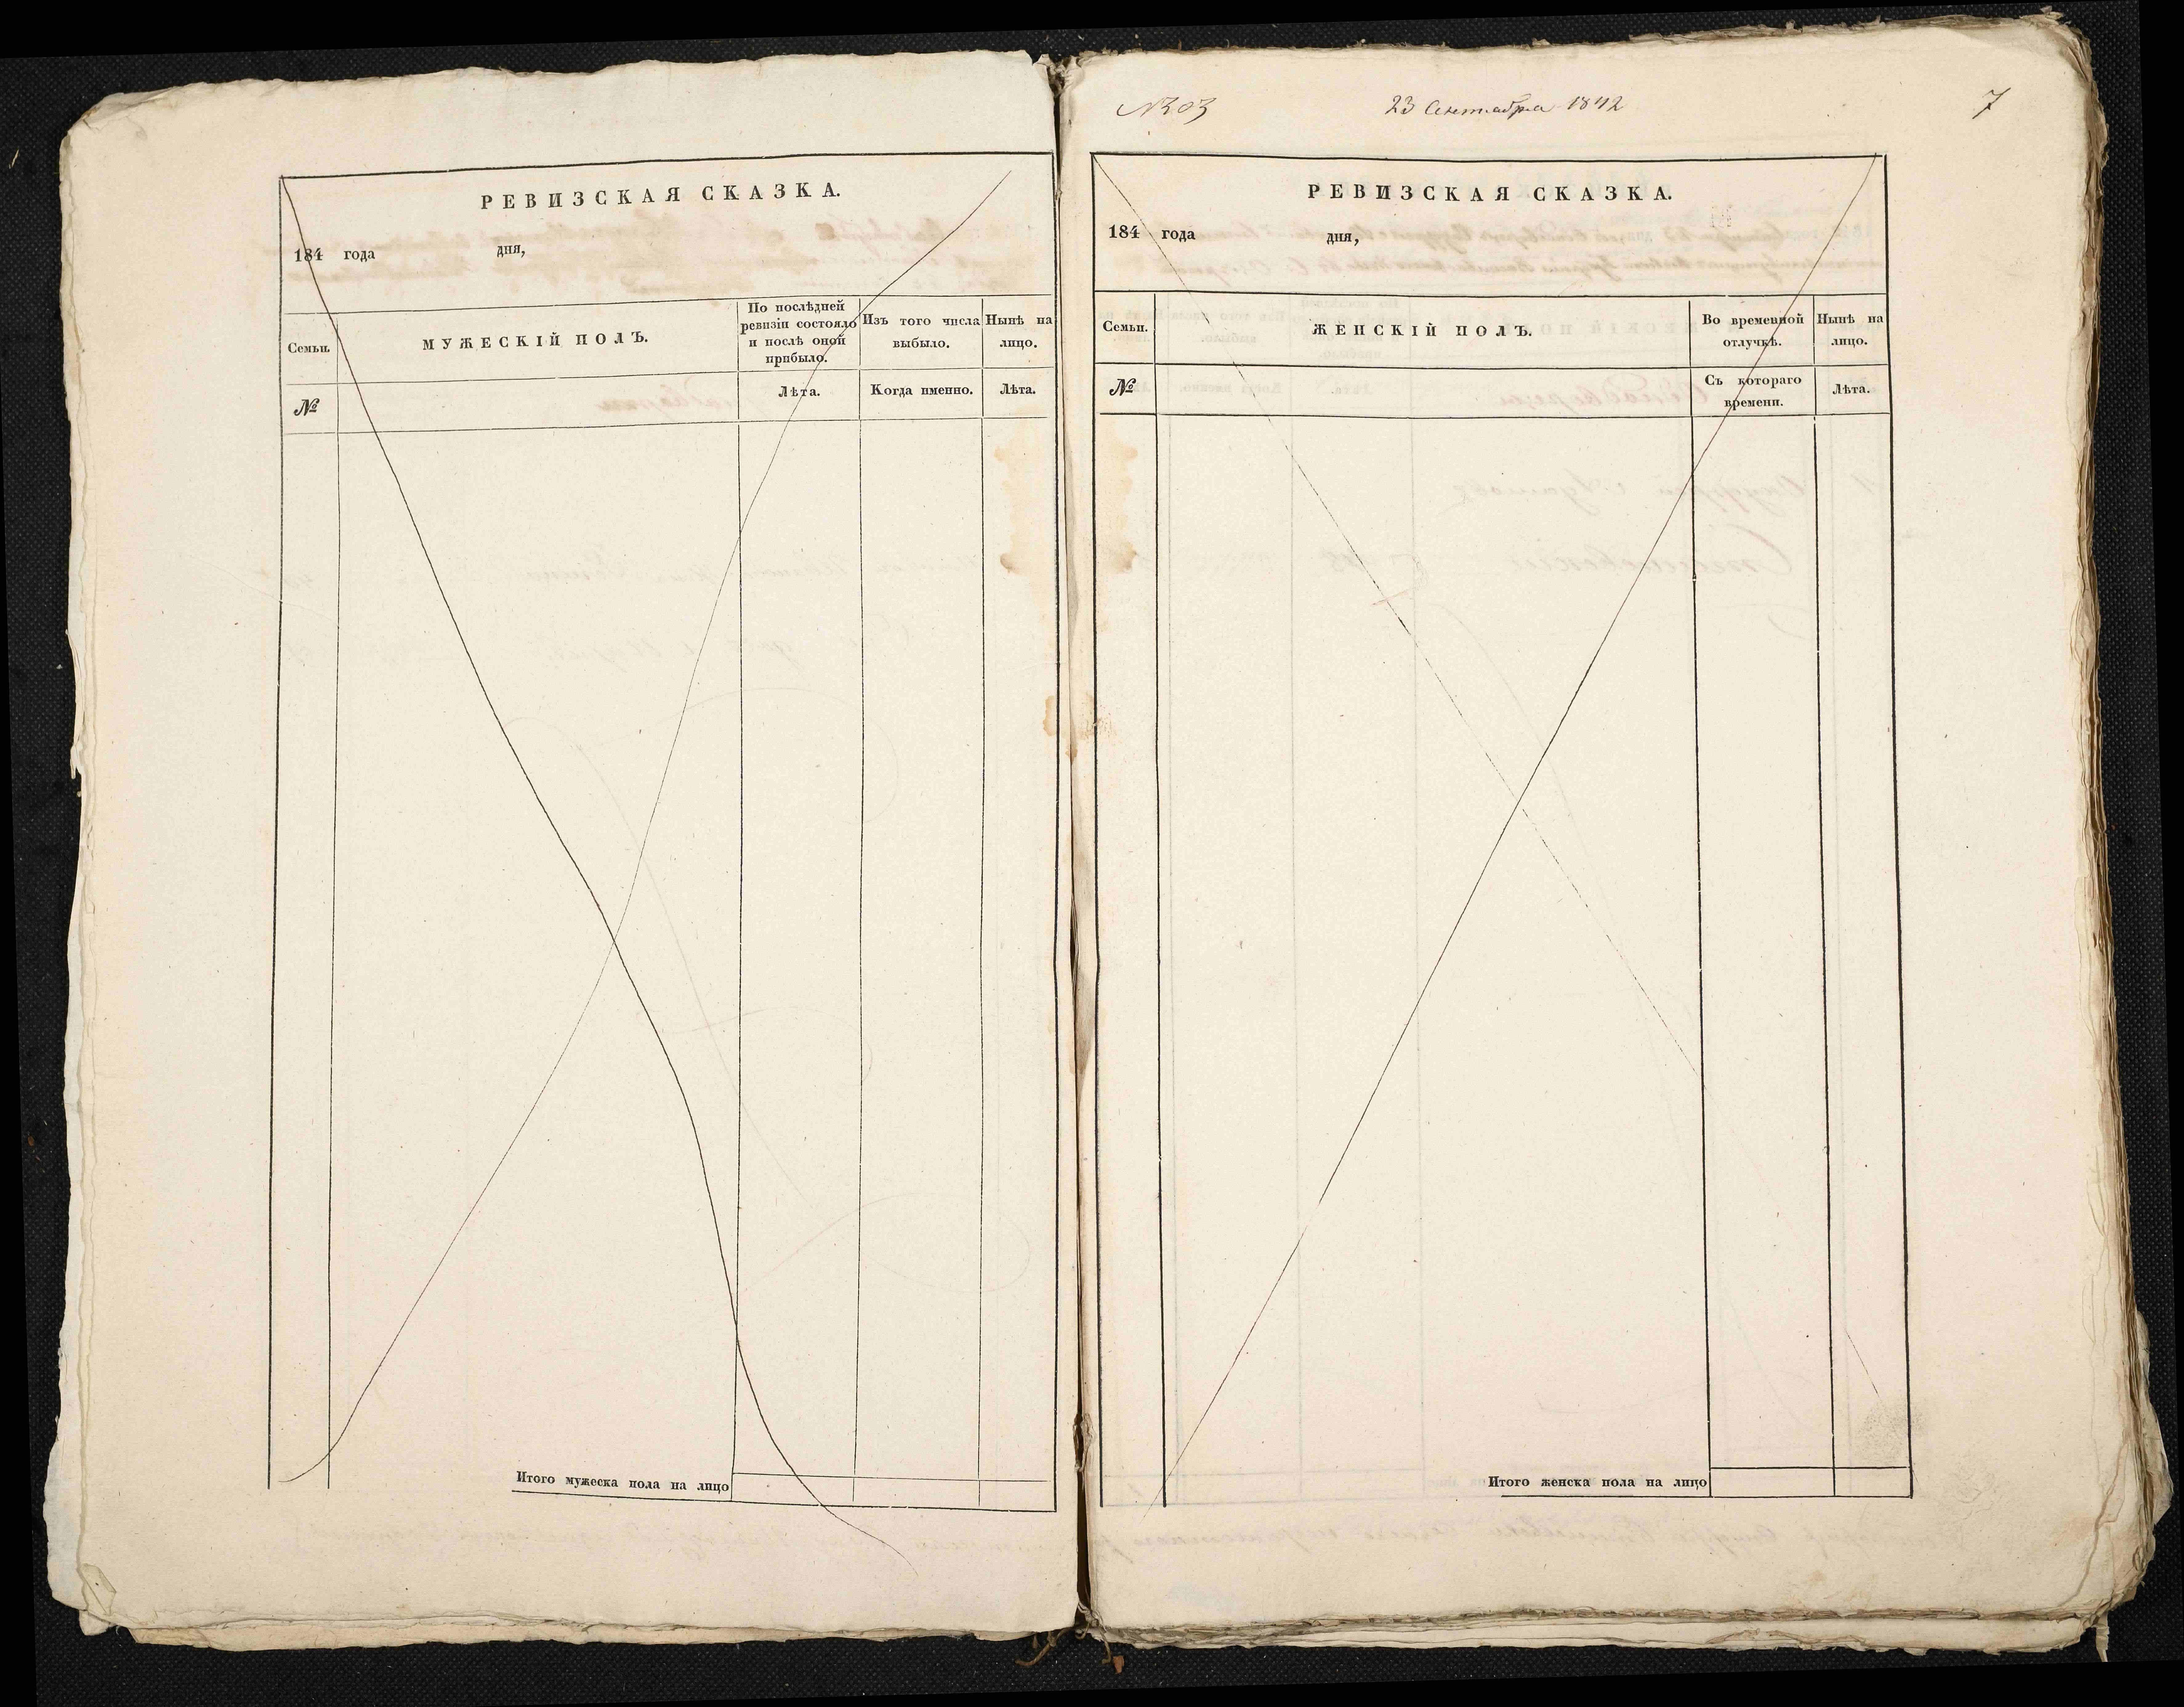 РЕВИЗСКАЯ СКАЗКА.
184 года дня,
Семьи.
МУЖЕСКІЙ ПОЛЪ.
По послѣдней
ревизіи состояло
и послѣ оной
прибыло.
Изъ того числа
выбыло.
Нынѣ на
лицо.
№
Лѣта.
Когда именно.
Лѣта.
Итого мужеска пола на лицо
N303 23 Сентября 1842 7
РЕВИЗСКАЯ СКАЗКА.
184 года дня,
Семьи.
ЖЕНСКІЙ ПОЛЪ.
Во временной
отлучкѣ.
Нынѣ на
лицо.
№
Съ котораго
времени.
Лѣта.
Итого женска пола на лицо